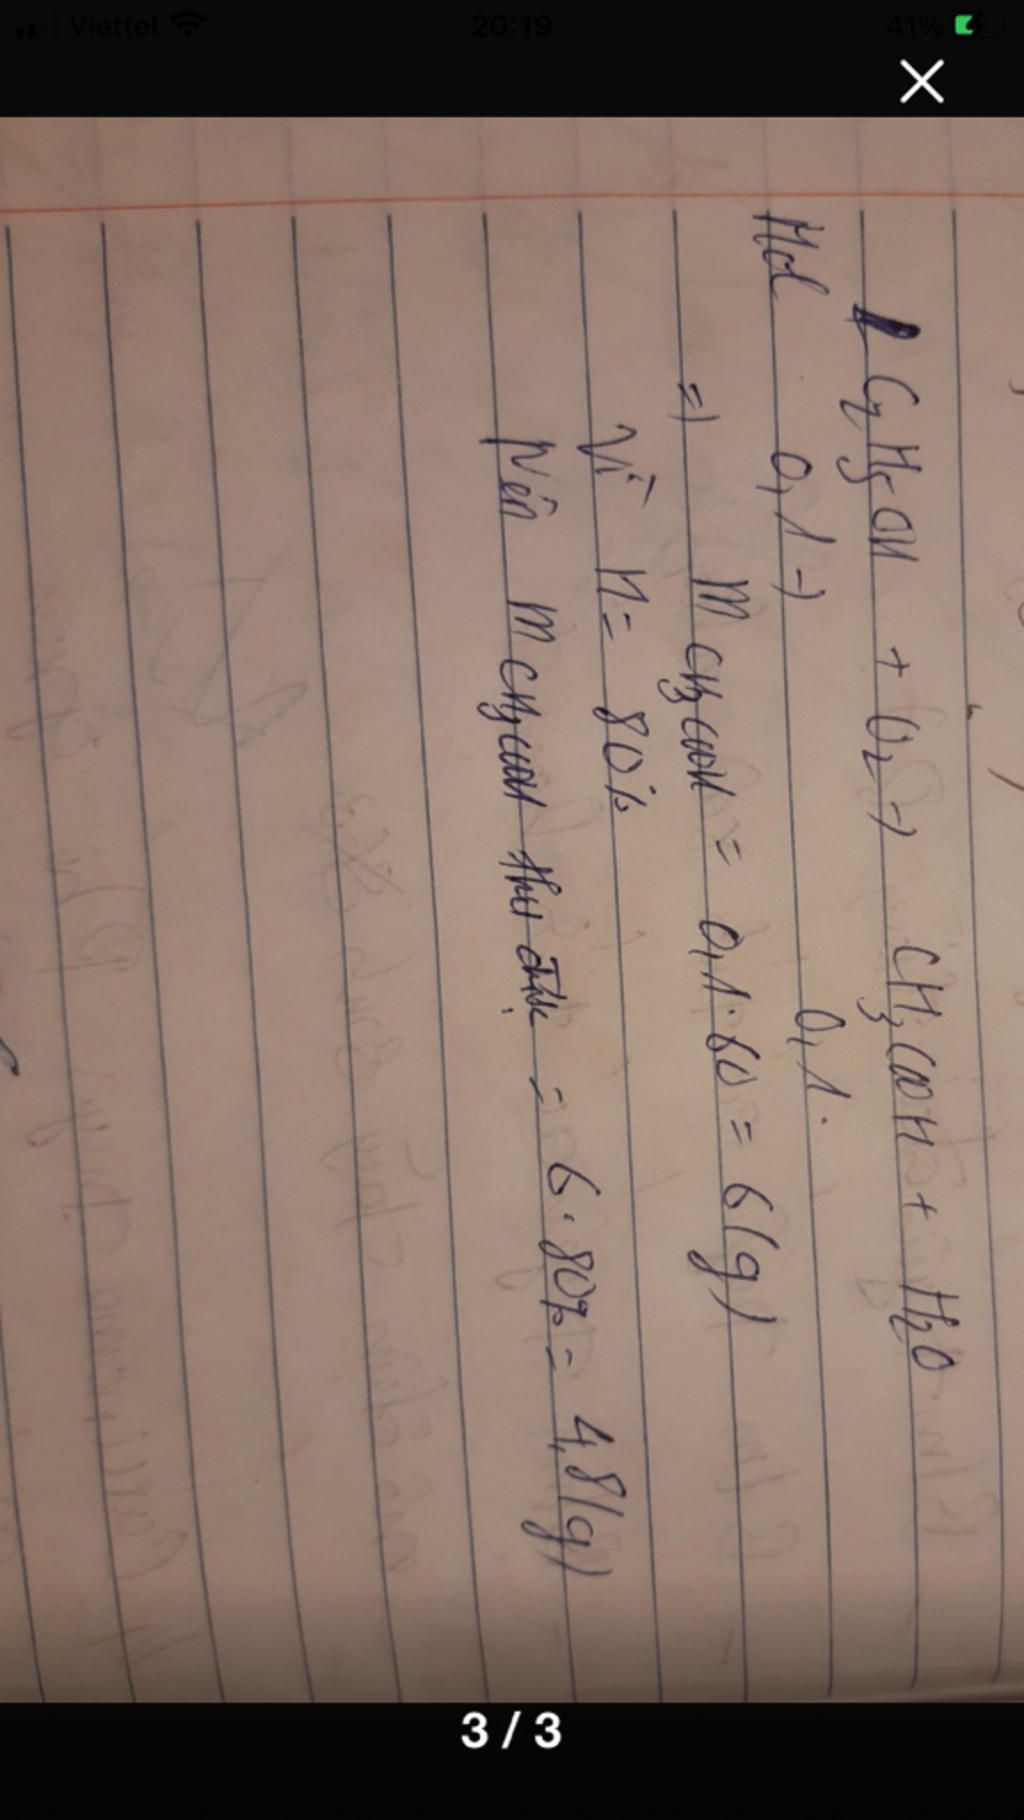 Viettel 20:19 41%
C2H5OH + O2 -> CH3COOH + H2O
Mol 0,1 -> 0,1.
=> m CH3COOH = 0,1.60 = 6(g)
Vì H = 80%
Nên m CH3COOH thu được = 6.80% = 4,8(g)
3 / 3